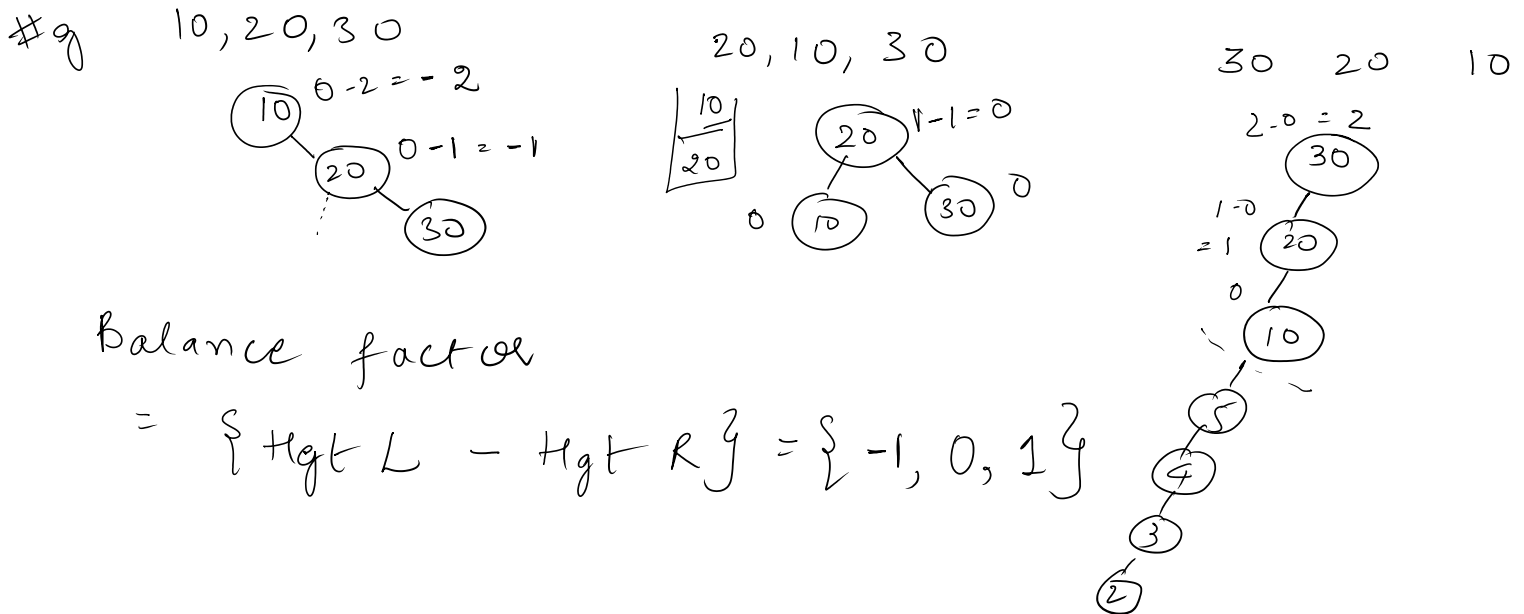 #g 10, 20, 30
10 0 - 2 = - 2
20 0 - 1 = - 1
30
20, 10, 30
10
20
20 1 - 1 = 0
0 10 30 0
30 20 10
2 - 0 = 2
30
1 - 0
= 1 20
0
10
5
4
3
2
Balance factor
= { Hgt L - Hgt R } = { -1, 0, 1 }